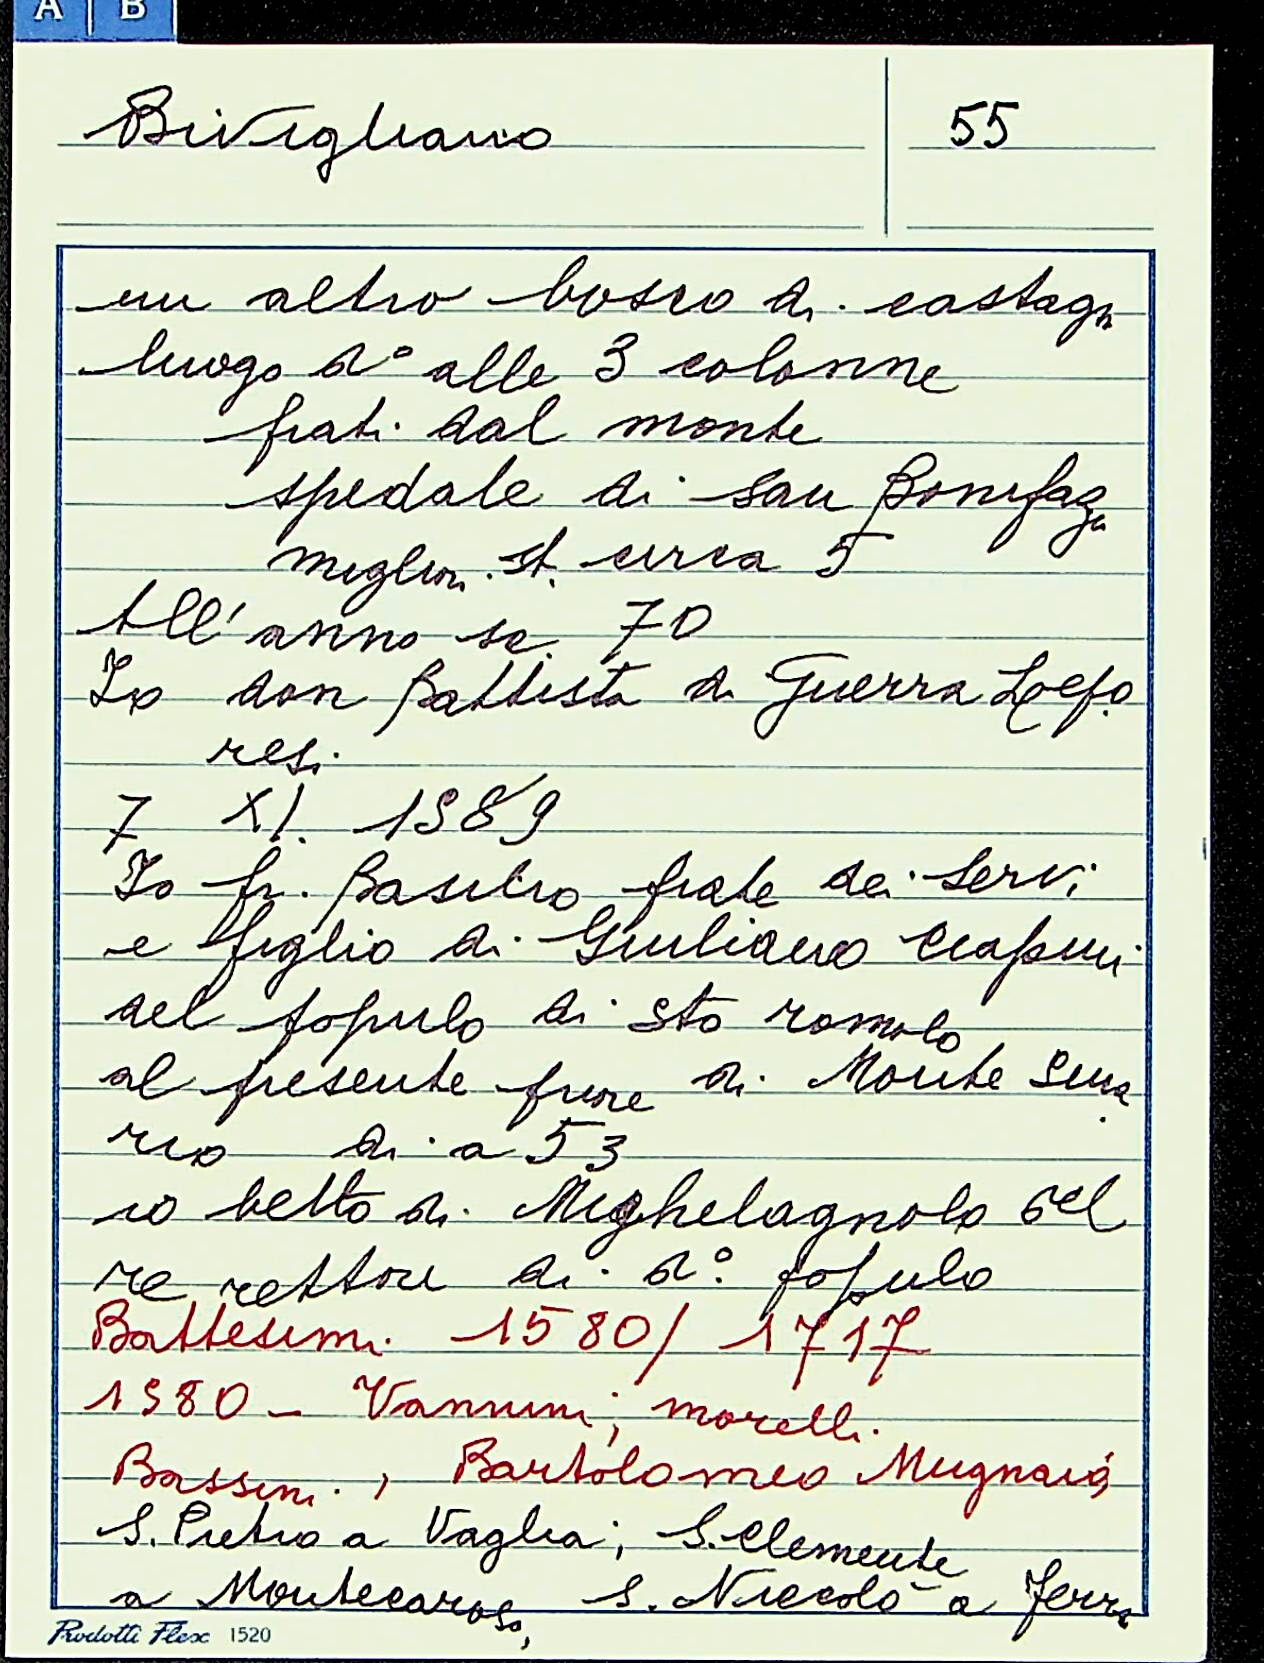 A B
Bivigliano 55
un altro bosco di castagn
luogo d° alle 3 colonne
frati dal monte
spedale di san Bonifaz
miglior. st. circa 5
All'anno sc. 70
Io don Battista di Guerra
resi.
7 XI. 1589
Io fr. Basilio frate dei Servi
e figlio di Giuliano Ciapini
del popolo di sto romolo
al presente priore di Monte Sena
rio di a 53
io betto di Mighelagnolo del
re rettore di d°: popolo
Battesimi 1580/1717
1580 - Vannini; morelli
Bassini, Bartolomeo Mugnaio,
S. Pietro a Vaglia; S. Clemente
a Montecaroso, S. Niccolò a Ferra
Prodotti Flex 1520